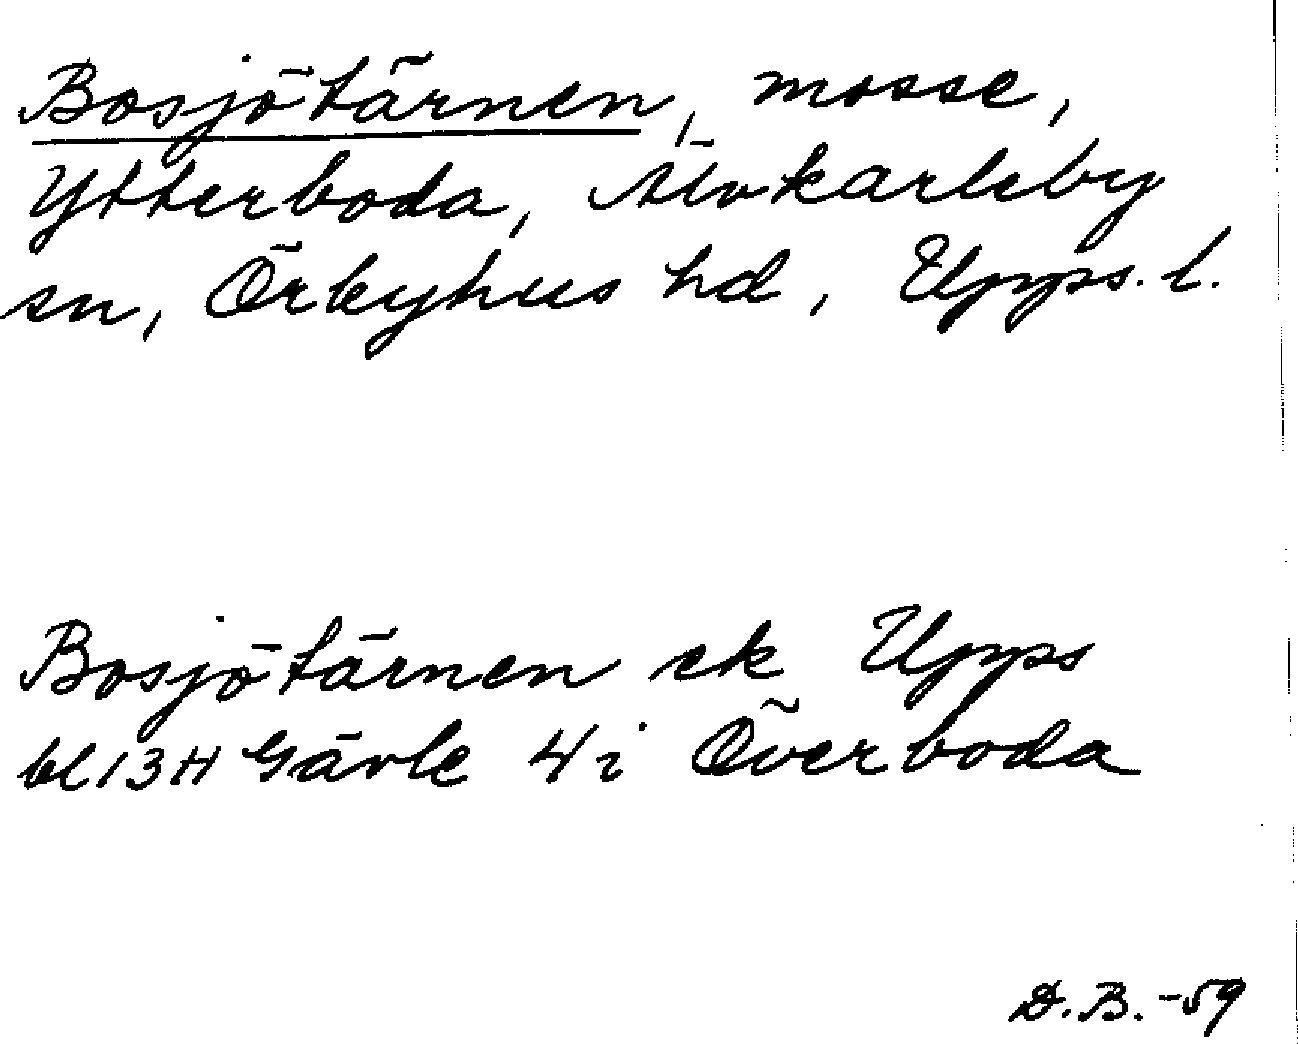 Bosjötärnen, mosse,
Ytterboda, Älvkarleby
sn, Örbyhus hd, Upps. l.
Bosjötärnen ek Upps
bl 13H Gävle 4i Överboda
D.B. -59